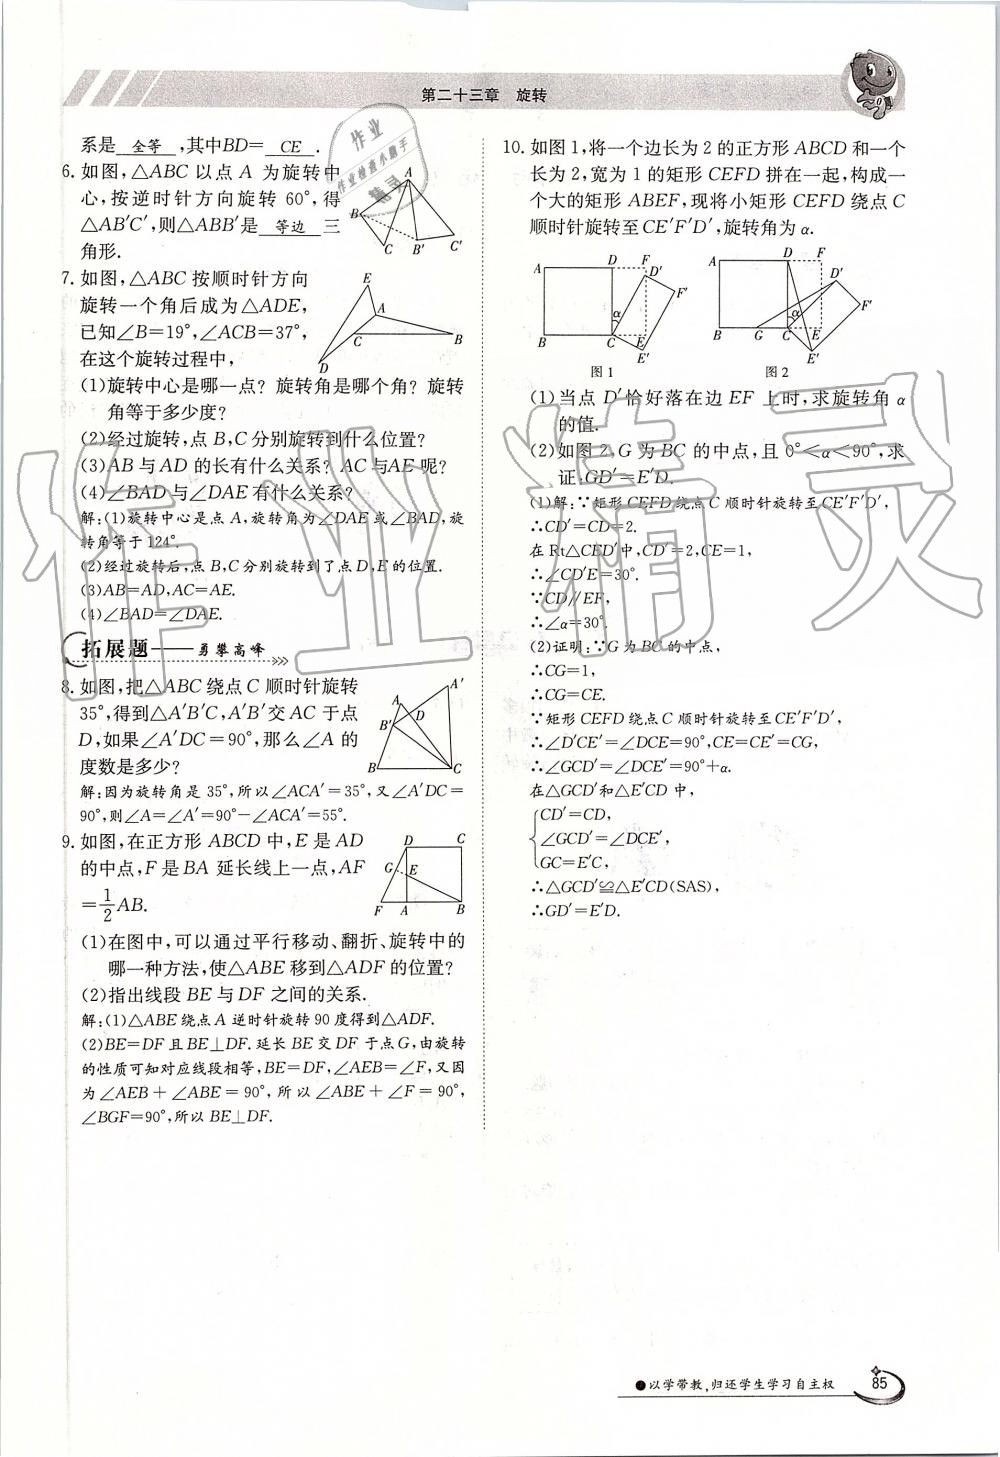 第二十三章　旋转
系是 全等 ,其中BD= CE .
6. 如图,△ABC 以点 A 为旋转中
心,按逆时针方向旋转 60°,得
△AB′C′,则△ABB′是 等边 三
角形.
A
B
C
B′
C′
7. 如图,△ABC 按顺时针方向
旋转一个角后成为△ADE,
已知∠B=19°,∠ACB=37°,
在这个旋转过程中,
E
A
C
B
D
(1)旋转中心是哪一点? 旋转角是哪个角? 旋转
角等于多少度?
(2)经过旋转,点 B,C 分别旋转到什么位置?
(3)AB 与 AD 的长有什么关系? AC 与AE 呢?
(4)∠BAD 与∠DAE 有什么关系?
解:(1)旋转中心是点 A,旋转角为∠DAE 或∠BAD,旋
转角等于 124°.
(2)经过旋转后,点 B,C 分别旋转到了点 D,E 的位置.
(3)AB=AD,AC=AE.
(4)∠BAD=∠DAE.
拓展题——勇攀高峰
8. 如图,把△ABC 绕点 C 顺时针旋转
35°,得到△A′B′C,A′B′交 AC 于点
D,如果∠A′DC=90°,那么∠A 的
度数是多少?
A′
A
D
B′
B
C
解:因为旋转角是 35°,所以∠ACA′=35°,又∠A′DC=
90°,则∠A=∠A′=90°−∠ACA′=55°.
9. 如图,在正方形 ABCD 中,E 是 AD
的中点,F 是 BA 延长线上一点,AF
=1/2AB.
D
C
G
E
F
A
B
(1)在图中,可以通过平行移动、翻折、旋转中的
哪一种方法,使△ABE 移到△ADF 的位置?
(2)指出线段 BE 与 DF 之间的关系.
解:(1)△ABE 绕点 A 逆时针旋转 90 度得到△ADF.
(2)BE=DF 且 BE⊥DF.延长 BE 交 DF 于点 G,由旋转
的性质可知对应线段相等,BE=DF,∠AEB=∠F,又因
为∠AEB+∠ABE=90°,所以∠ABE+∠F=90°,
∠BGF=90°,所以 BE⊥DF.
10. 如图 1,将一个边长为 2 的正方形 ABCD 和一个
长为 2,宽为 1 的矩形 CEFD 拼在一起,构成一
个大的矩形 ABEF,现将小矩形 CEFD 绕点 C
顺时针旋转至 CE′F′D′,旋转角为 α.
A
D
F
D′
F′
α
B
C
E
E′
图 1
A
D
F
D′
F′
α
B
G
C
E
E′
图 2
(1)当点 D′恰好落在边 EF 上时,求旋转角 α
的值.
(2)如图 2,G 为 BC 的中点,且 0°<α<90°,求
证:GD′=E′D.
(1)解:∵矩形 CEFD 绕点 C 顺时针旋转至CE′F′D′,
∴CD′=CD=2.
在 Rt△CED′中,CD′=2,CE=1,
∴∠CD′E=30°.
∵CD∥EF,
∴∠α=30°.
(2)证明:∵G 为 BC 的中点,
∴CG=1,
∴CG=CE.
∵矩形 CEFD 绕点 C 顺时针旋转至CE′F′D′,
∴∠D′CE′=∠DCE=90°,CE=CE′=CG,
∴∠GCD′=∠DCE′=90°+α.
在△GCD′和△E′CD 中,
CD′=CD,
∠GCD′=∠DCE′,
GC=E′C,
∴△GCD′≌△E′CD(SAS),
∴GD′=E′D.
作业精灵
作业
作业检查小助手
●以学带教,归还学生学习自主权
85